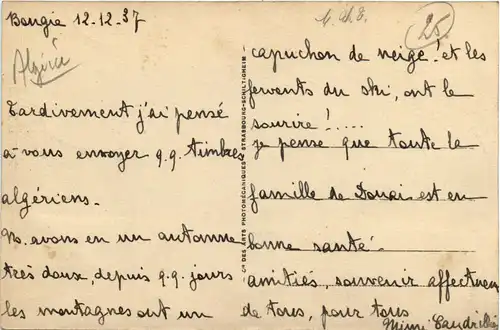 Bougie 12-12-37
Algérie
Tardivement j'ai pensé
à vous envoyer q.q. timbres
algériens.
Ns. avons eu un automne
très doux, depuis q.q. jours
les montagnes ont un
Cie DES ARTS PHOTOMÉCANIQUES - STRASBOURG-SCHILTIGHEIM
25
capuchon de neige! et les
fervents du ski, ont le
sourire!.....
je pense que toute la
famille de Douai est en
bonne santé.
amitiés, souvenir affectueux
de tous, pour tous
Mimi